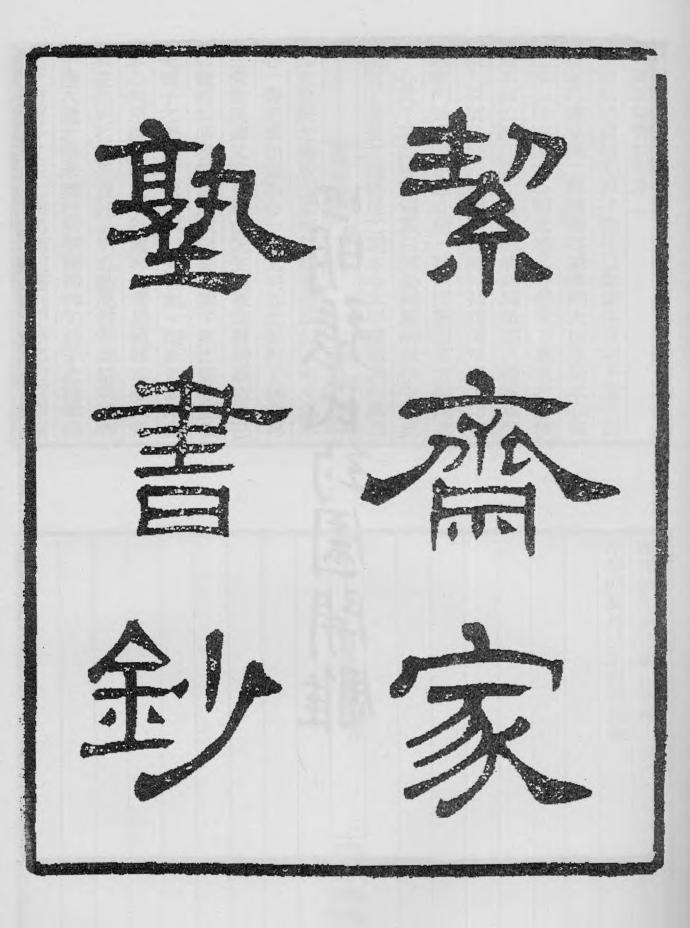 絜齋家
塾書鈔